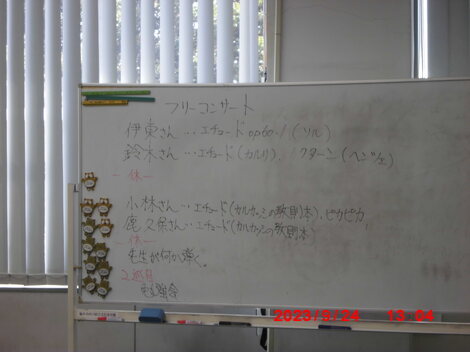 フリーコンサート
伊東さん…エチュードop60-1(ソル)
鈴木さん…エチュード(カルリ)、
休
小林さん…エチュード(カルカッシの教則本)、ピカピカ
鹿久保さん…エチュード(カルカッシの教則本)
休
先生が何か弾く。
2巡目
勉強会
2023/9/24 13:04